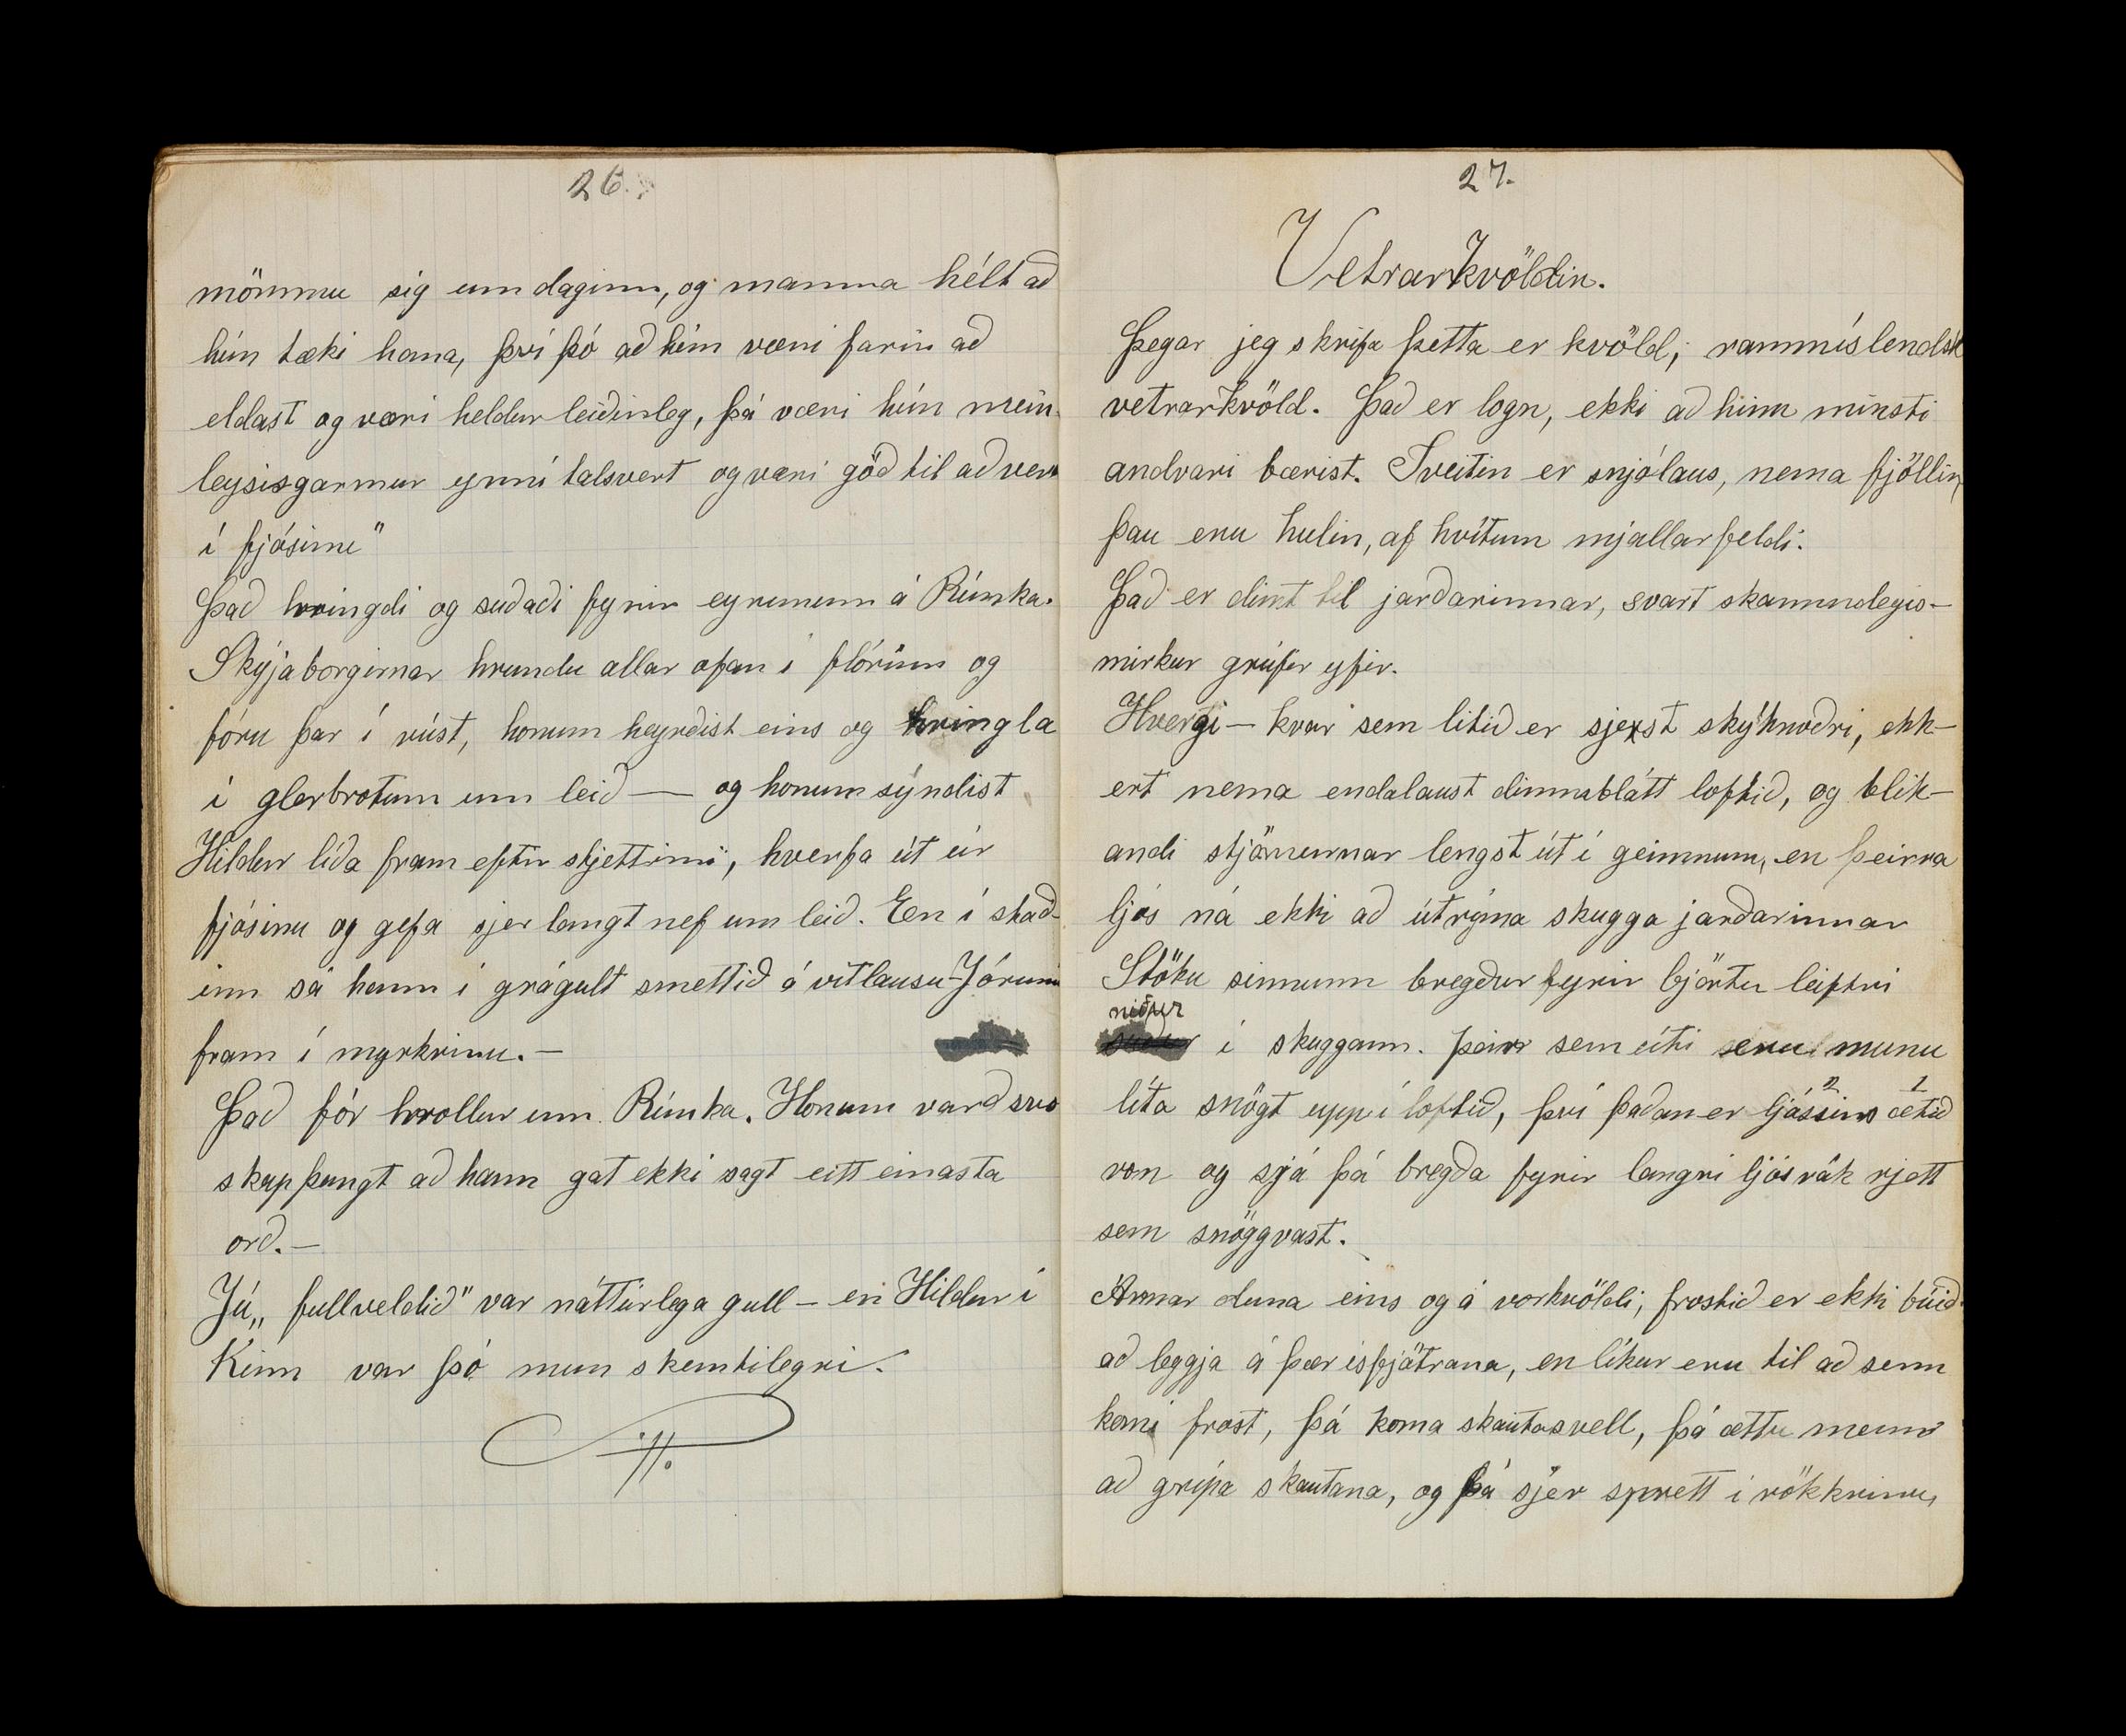 26.
mömmu sig um daginn, og mamma hélt að
hún tæki hana, því þó að hún væri farin að
eldast og væri heldur leiðinleg, þá væri hún mein-
leysisgarmur ynni talsvert og væri góð til að vera
í fjósinu"
Það hringdi og suðaði fyrir eyrunum á Rúnka.
Skýjaborgirnar hrundu allar ofan í flórinn og
fóru þar í rúst, honum heyrðist eins og hringla
í glerbrotum um leið — og honum sýndist
Hildur líða fram eftir stjettinni, hverfa út úr
fjósinu og gefa sjer langt nef um leið. En í stað-
inn sá hann í grágult smettið á vitlausu-Jórunni
fram í myrkrinu. —
Það fór hrollur um Rúnka. Honum varð svo
skapþungt að hann gat ekki sagt eitt einasta
orð. —
Jú „fullveldið" var náttúrlega gull — en Hildur í
Kinn var þó mun skemtilegri.
27.
Vetrarkvöldin.
Þegar jeg skrifa þetta er kvöld; rammíslendsk
vetrarkvöld. Það er logn, ekki að hinn minsti
andvari bærist. Sveitin er snjólaus, nema fjöllin,
þau eru hulin, af hvítum mjallarfeldi.
Það er dimt til jarðarinnar, svart skammdegis-
mirkur grúfir yfir.
Hvergi — hvar sem litið er sjest skýhnoðri, ekk-
ert nema endalaust dimmblátt loftið, og blik-
andi stjörnurnar lengst út í geimnum, en þeirra
ljós ná ekki að útrýma skugga jarðarinnar
Stöku sinnum bregður fyrir björtu leiftri
niður
í skuggann. Þeir sem úti eru munu
2 1
líta snögt upp í loftið, því þaðan er ljóssins ætið
von og sjá þá bregða fyrir langri ljósrák rjett
sem snöggvast.
Árnar duna eins og á vorkvöldi, frostið er ekki búið
að leggja á þær ísfjötrana, en líkur eru til að senn
komi frost, þá koma skautasvell, þá ættu menn
að grípa skautana, og fá sjer sprett í rökkrinu,